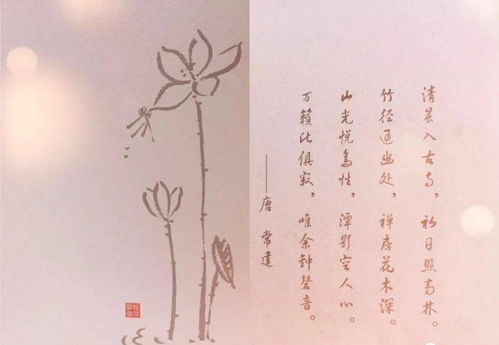 清晨入古寺，初日照高林。
竹径通幽处，禅房花木深。
山光悦鸟性，潭影空人心。
万籁此俱寂，唯余钟磬音。
——唐 常建